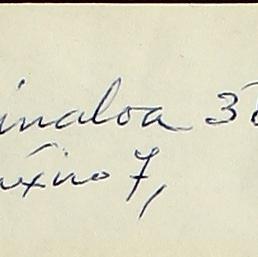 inaloa 3
éxico 7,